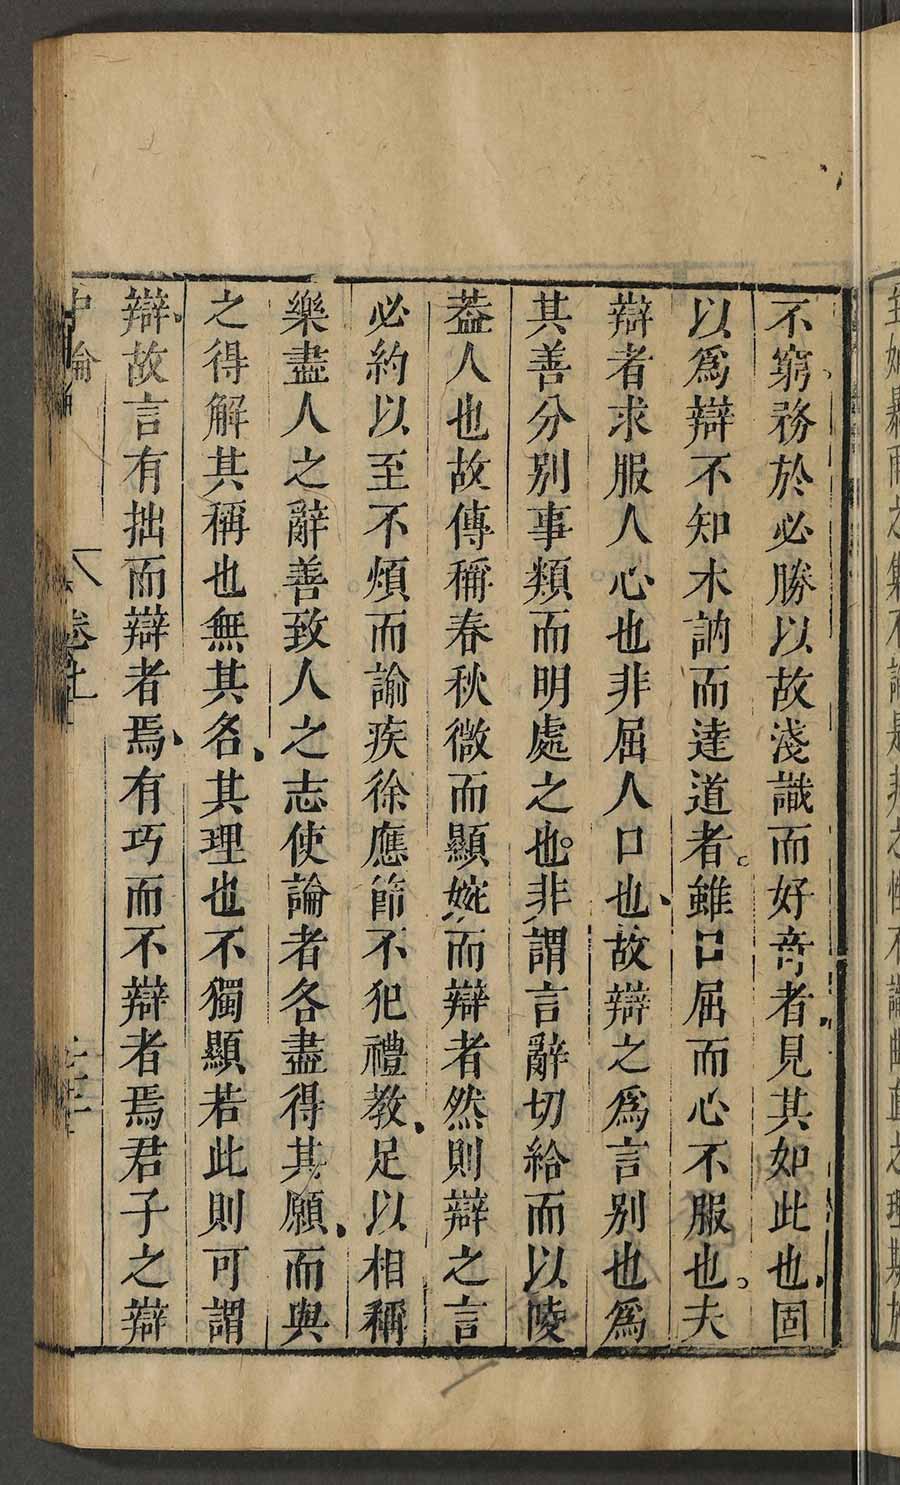 不窮務於必勝以故淺識而好奇者見其如此也固
以爲辯不知木訥而達道者雖口屈而心不服也夫
辯者求服人心也非屈人口也故辯之爲言別也爲
其善分別事類而明處之也非謂言辭切給而以陵
葢人也故傳稱春秋微而顯婉而辯者然則辯之言
必約以至不煩而諭疾徐應節不犯禮教足以相稱
樂盡人之辭善致人之志使論者各盡得其願而與
之得解其稱也無其名其理也不獨顯若此則可謂
辯故言有拙而辯者焉有巧而不辯者焉君子之辯
中論 卷上